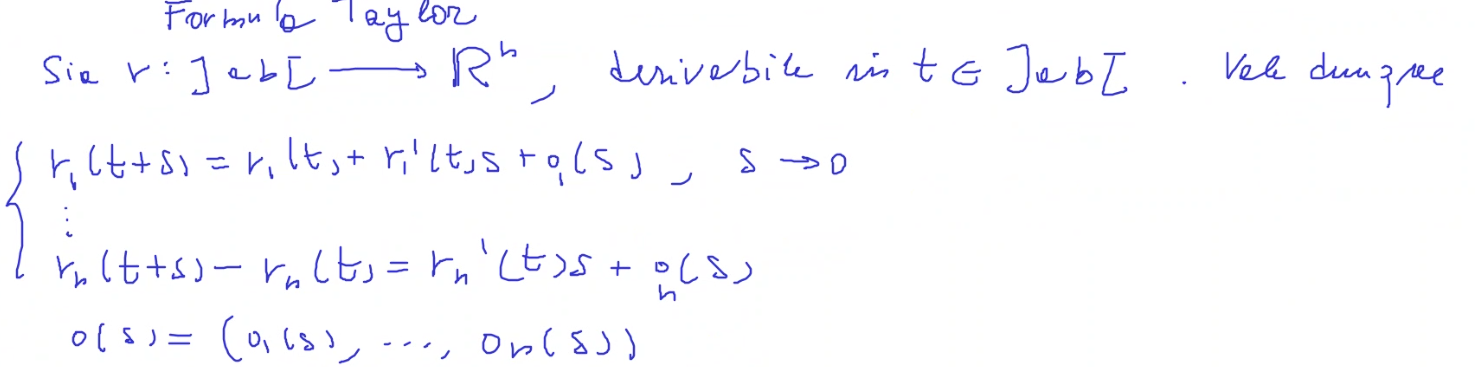 Formula Taylor
Sia r: ]ab[ → Rⁿ, derivabile in t ∈ ]ab[. Vale dunque
r₁(t+s) = r₁(t) + r₁'(t)s + o₁(s), s → 0
⋮
rₙ(t+s) - rₙ(t) = rₙ'(t)s + oₙ(s)
o(s) = (o₁(s), ..., oₙ(s))